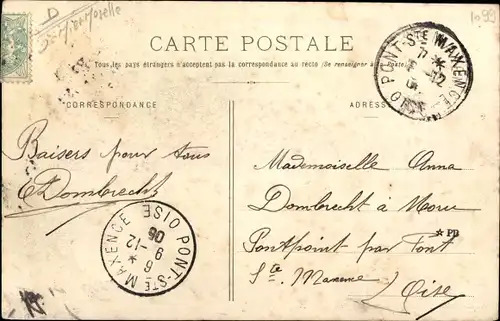 1099
D
CARTE POSTALE
Tous les pays étrangers n'acceptent pas la correspondance au recto (Se renseigner à la poste)
CORRESPONDANCE
ADRESSE
PONT-STE MAXENCE
OISE
Baisers pour tous
E Dombrecht
Mademoiselle Anna
Dombrecht à Moru
Pontpoint par Pont
Ste Maxence
Oise
PONT-STE MAXENCE OISE
6 *
9 -12
06
* PB